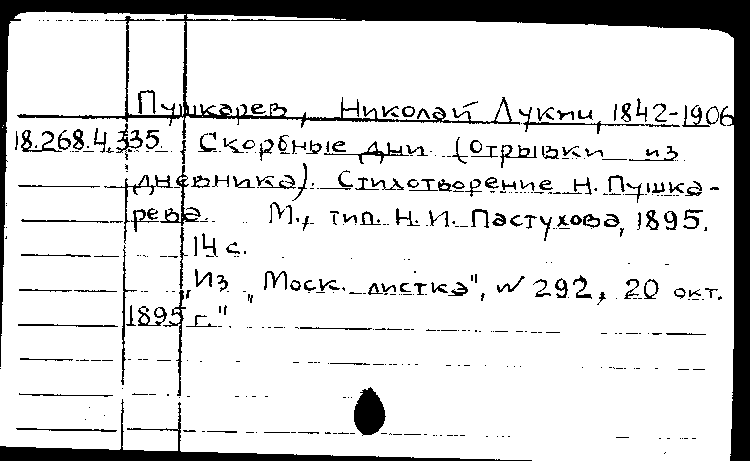 Пушкарев, Николай Лукич, 1842-1906
18.268.4.335. Скорбные дни (отрывки из
дневника). Стихотворение Н. Пушка-
рева. М., тип. Н. И. Пастухова, 1895.
14 с.
"Из "Моск. листка", № 292, 20 окт.
1895 г."